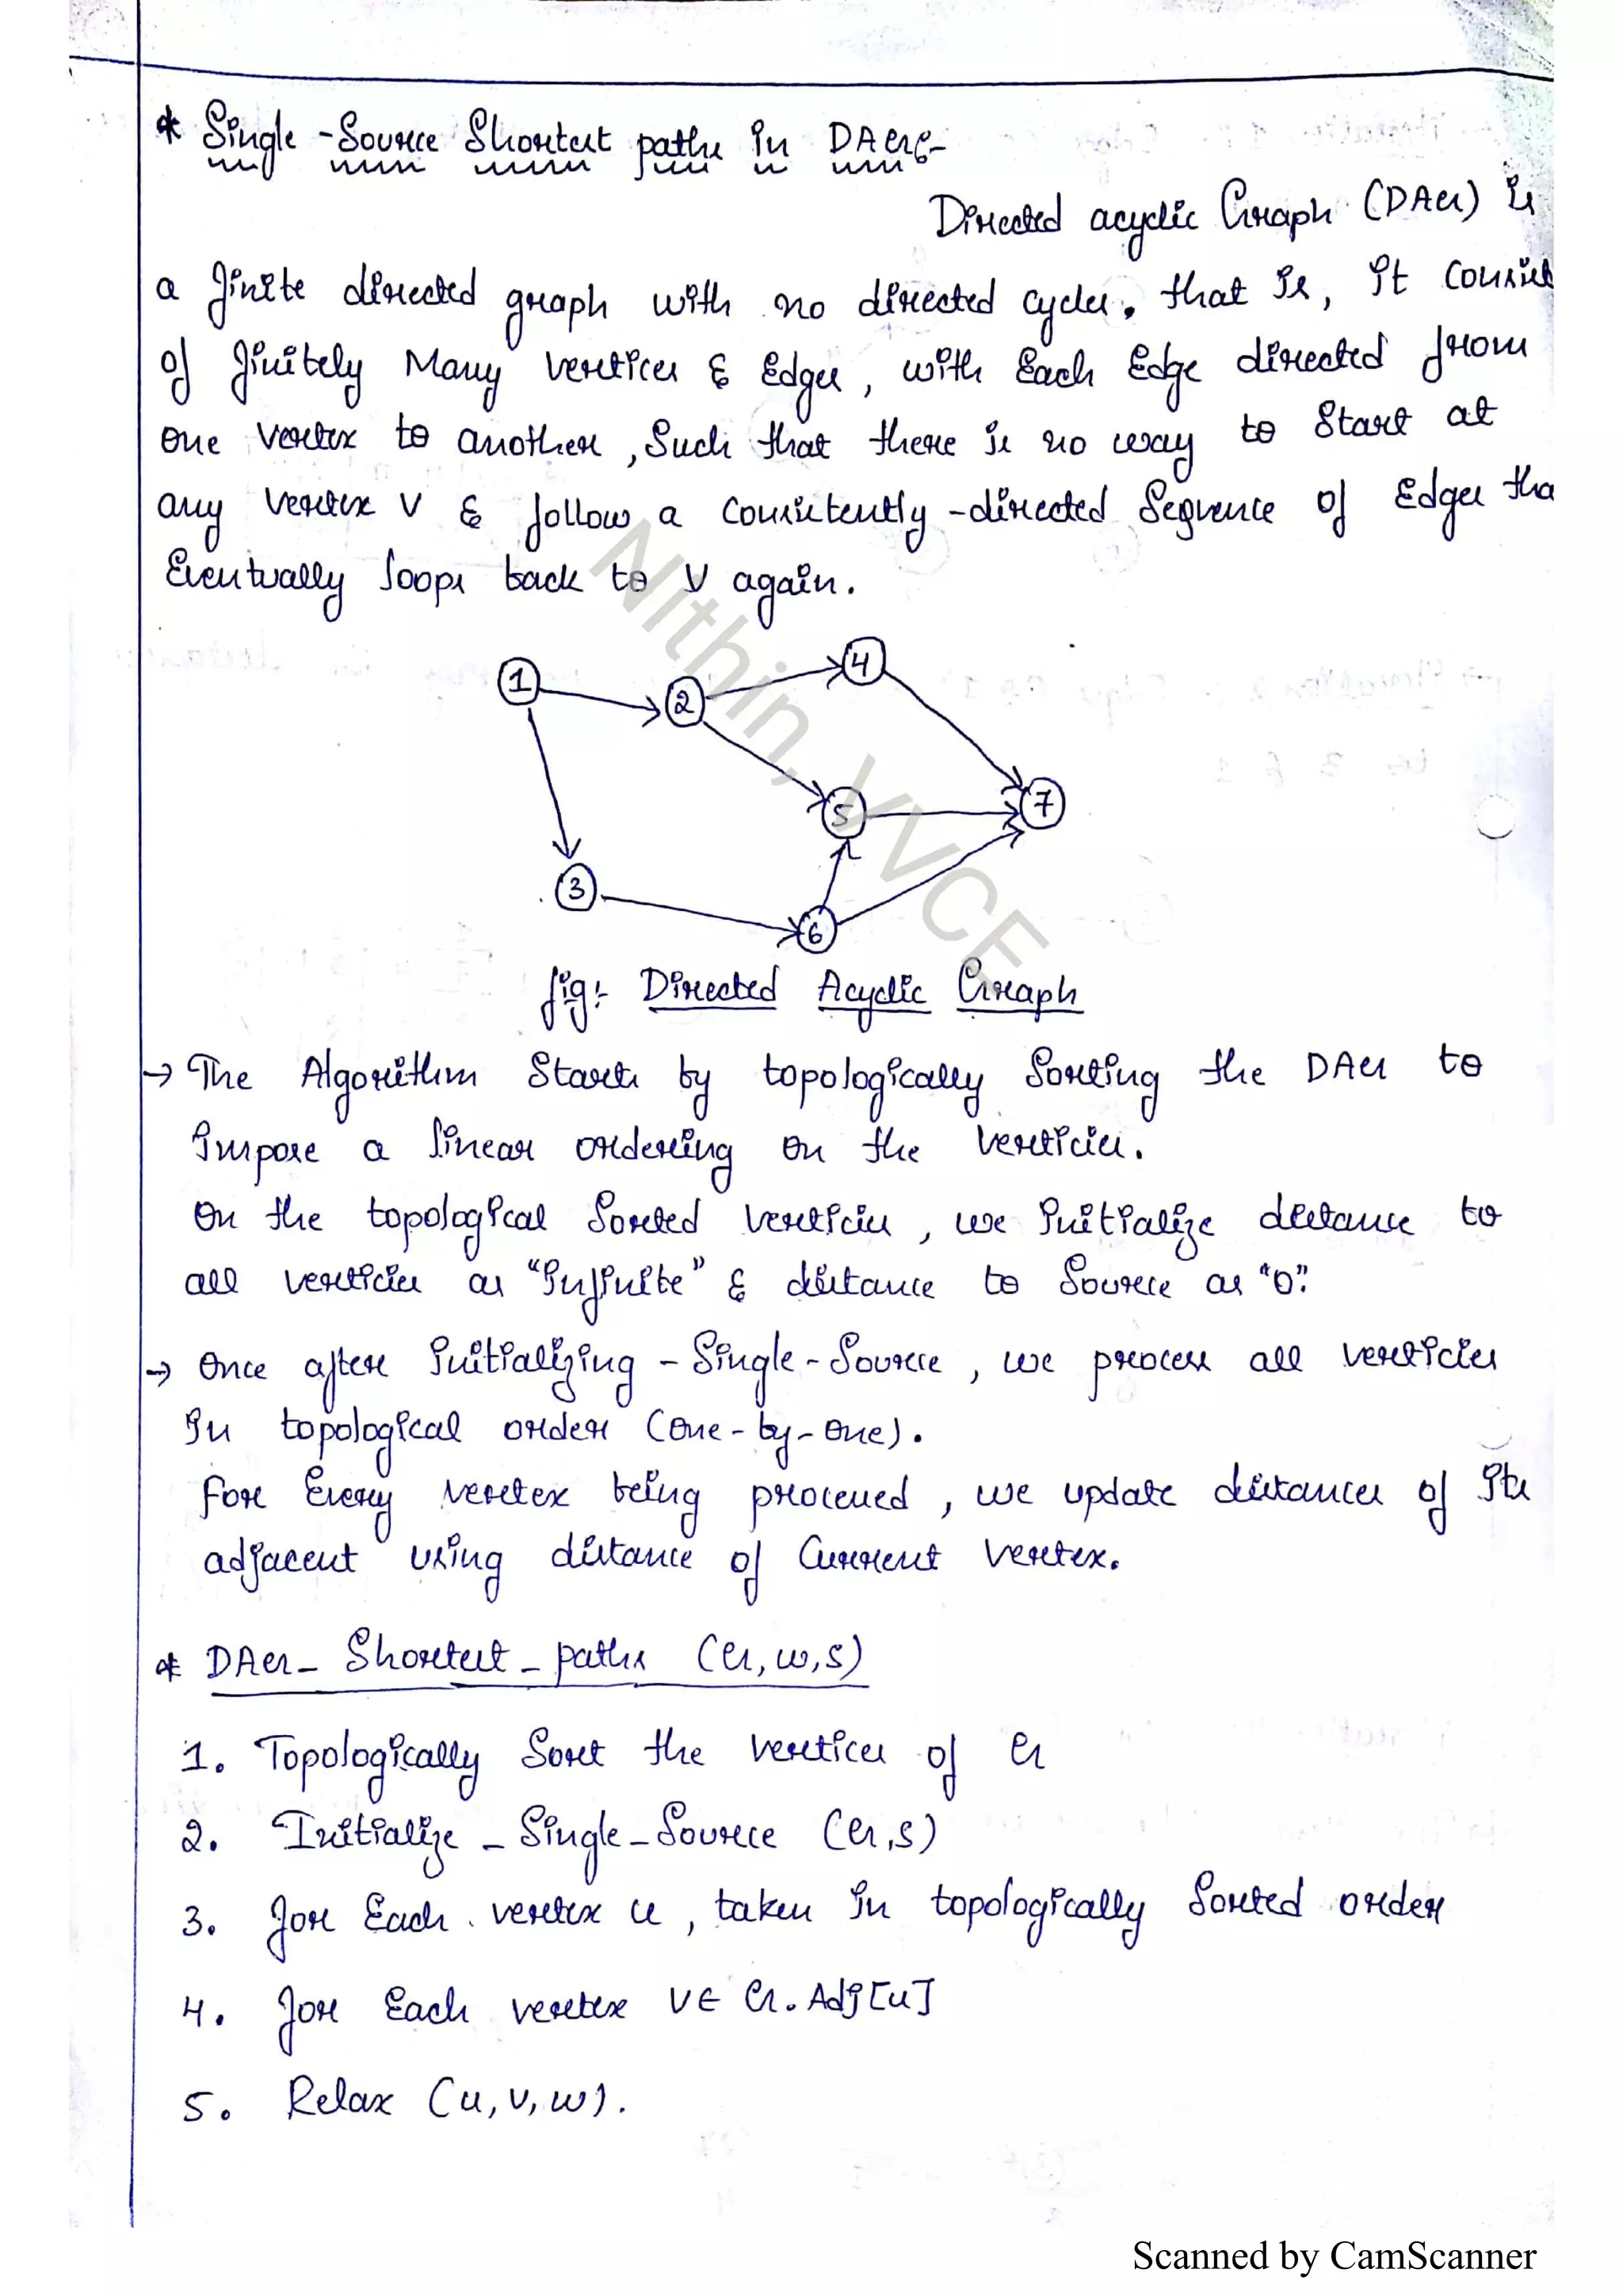 * Single-Source Shortest paths in DAG:-
Directed acyclic Graph (DAG) is
a finite directed graph with no directed cycles. that is, it consist
of finitely Many vertices & Edges, with Each Edge directed from
one vertex to another, Such that there is no way to Start at
any vertex V & follow a Consistently-directed Sequence of Edges tha
Eventually loops back to V again.
1
2
4
5
7
3
6
Nithin, VVCE
fig:- Directed Acyclic Graph
→ The Algorithm Starts by topologically Sorting the DAG to
Impose a linear ordering on the verticies.
On the topological Sorted verticies, we initialize distance to
all verticies as "Infinite" & distance to Source as "0".
→ Once after initializing - Single-Source, we process all verticies
In topological order (One-by-One).
For Every vertex being processed, we update distances of its
adjacent using distance of Current vertex.
* DAG_Shortest_paths (G,w,s)
1. Topologically Sort the vertices of G
2. Initialize_Single_Source (G,s)
3. for Each vertex u, taken in topologically Sorted order
4. for Each vertex V∈ G.Adj[u]
5. Relax (u,v,w).
Scanned by CamScanner